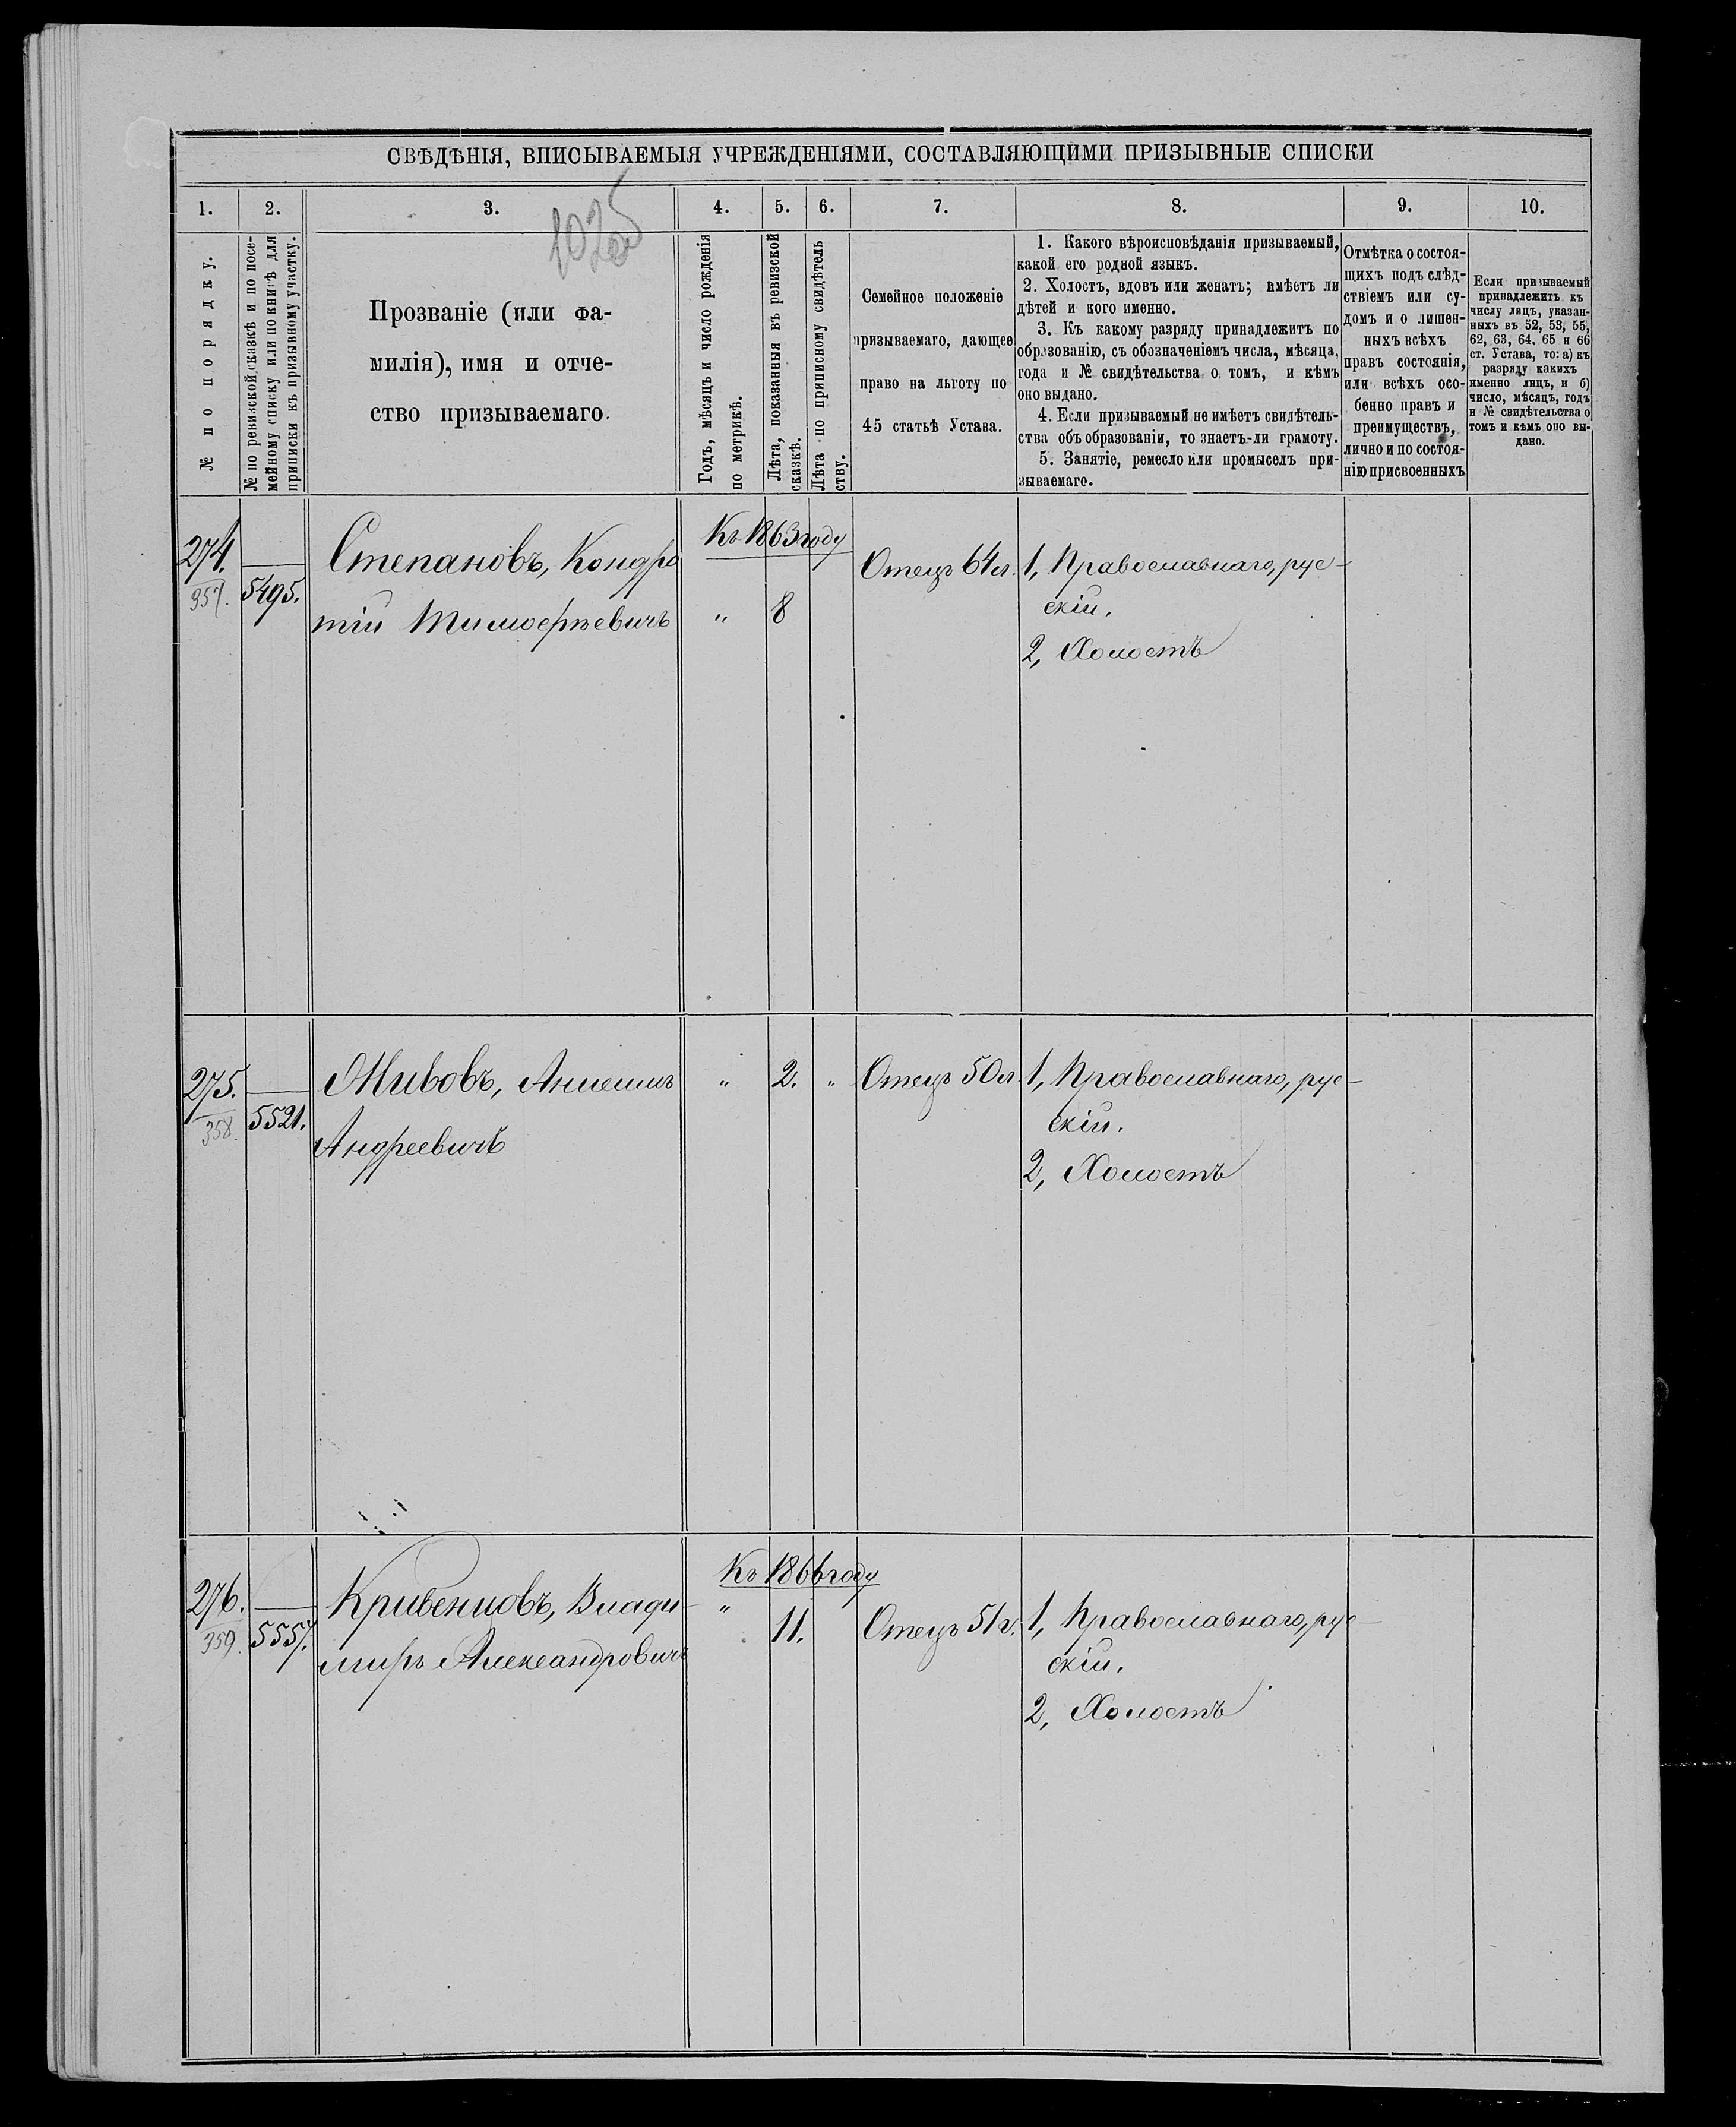 СВѢДѢНІЯ, ВПИСЫВАЕМЫЯ УЧРЕЖДЕНІЯМИ, СОСТАВЛЯЮЩИМИ ПРИЗЫВНЫЕ СПИСКИ
1. 2. 3. 4. 5. 6. 7. 8. 9. 10.
№ по порядку.
№ по ревизской сказкѣ и по посе-
мейному списку или по книгѣ для
приписки къ призывному участку.
1025
Прозваніе (или фа-
милія), имя и отче-
ство призываемаго.
Годъ, мѣсяцъ и число рожденія
по метрикѣ.
Лѣта, показанныя въ ревизской
сказкѣ.
Лѣта по приписному свидѣтель
ству.
Семейное положеніе
призываемаго, дающее
право на льготу по
45 статьѣ Устава.
1. Какого вѣроисповѣданія призываемый,
какой его родной языкъ.
2. Холостъ, вдовъ или женатъ; имѣетъ ли
дѣтей и кого именно.
3. Къ какому разряду принадлежитъ по
образованію, съ обозначеніемъ числа, мѣсяца,
года и № свидѣтельства о томъ, и кѣмъ
оно выдано.
4. Если призываемый не имѣетъ свидѣтель-
ства объ образованіи, то знаетъ-ли грамоту.
5. Занятіе, ремесло или промыселъ при-
зываемаго.
Отмѣтка о состоя-
щихъ подъ слѣд-
ствіемъ или су-
домъ и о лишен-
ныхъ всѣхъ
правъ состоянія,
или всѣхъ осо-
бенно правъ и
преимуществъ,
лично и по состоя-
нію присвоенныхъ
Если призываемый
принадлежитъ къ
числу лицъ, указан-
ныхъ въ 52, 53, 55,
62, 63, 64, 65 и 66
ст. Устава, то: а) къ
разряду какихъ
именно лицъ, и б)
число, мѣсяцъ, годъ
и № свидѣтельства о
томъ и кѣмъ оно вы-
дано.
274.
357.
5495.
Степановъ, Кондра
тій Тимоѳеевичъ
Къ 1863 году
" 8
Отецъ 64 л.
1, Православнаго, рус-
скій.
2, Холостъ
275.
358.
5521.
Андреевичъ
" 2. "
Отецъ 50 л
1, Православнаго, рус-
скій.
2, Холостъ
276.
359.
5557.
Кривенцовъ, Влади-
миръ Александровичъ
Къ 1866 году
" 11.
Отецъ 51 г.
1, Православнаго, рус-
скій.
2, Холостъ